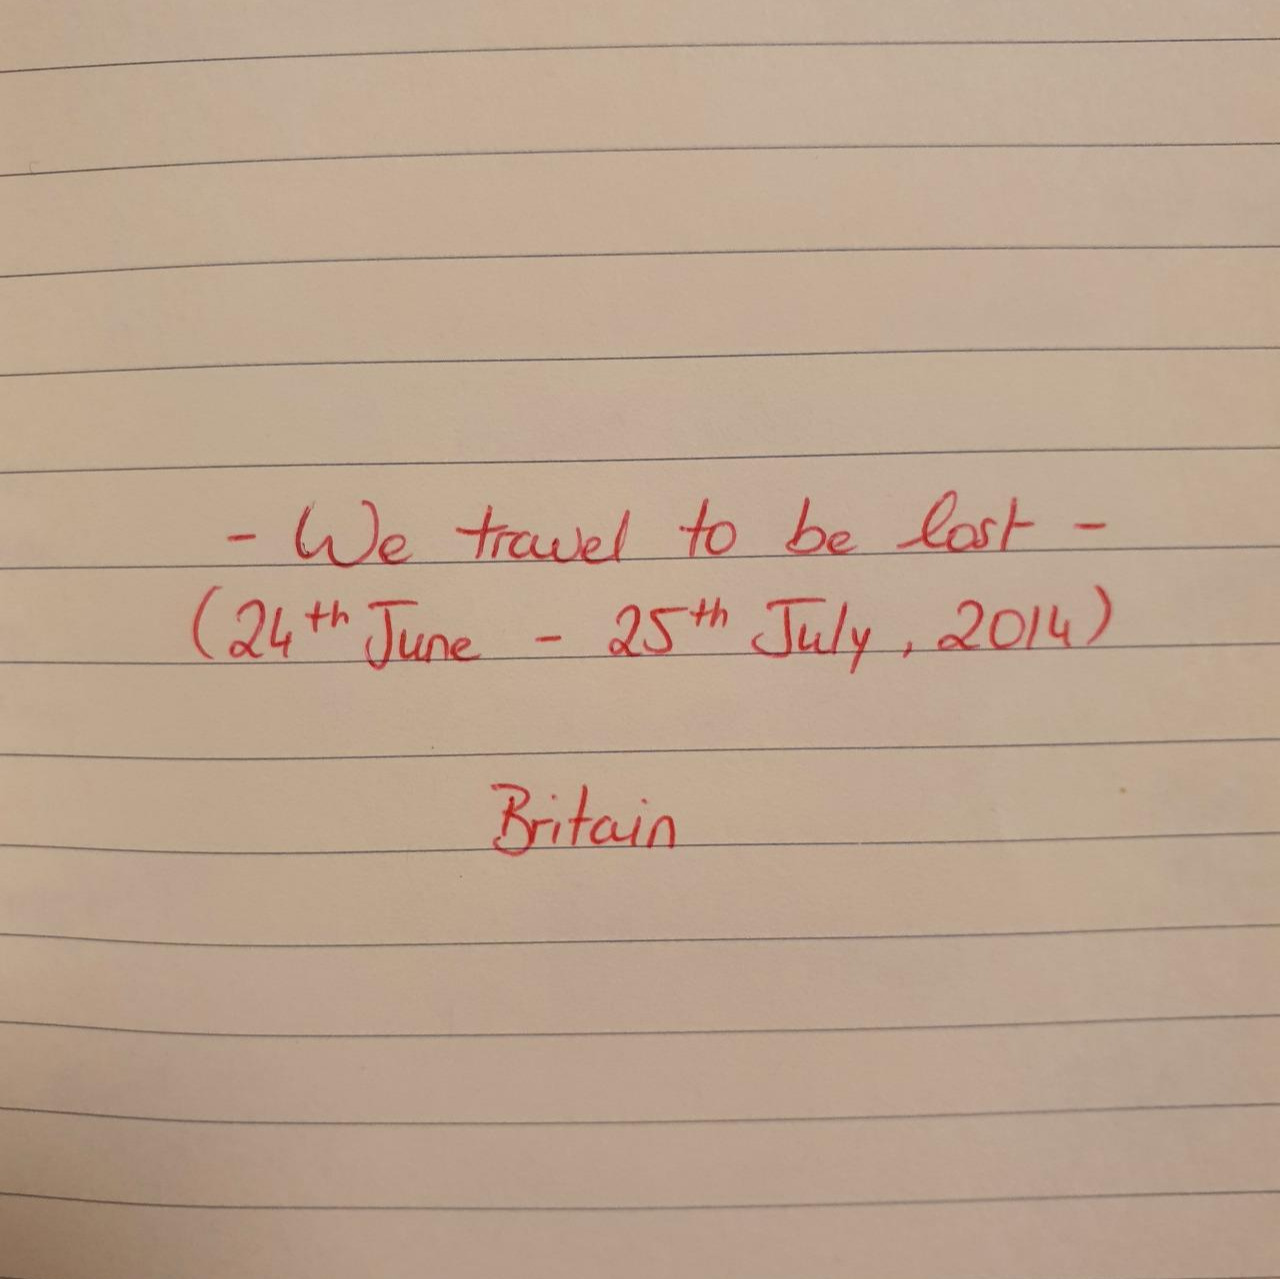 - We travel to be lost -
(24th June - 25th July, 2014)
Britain